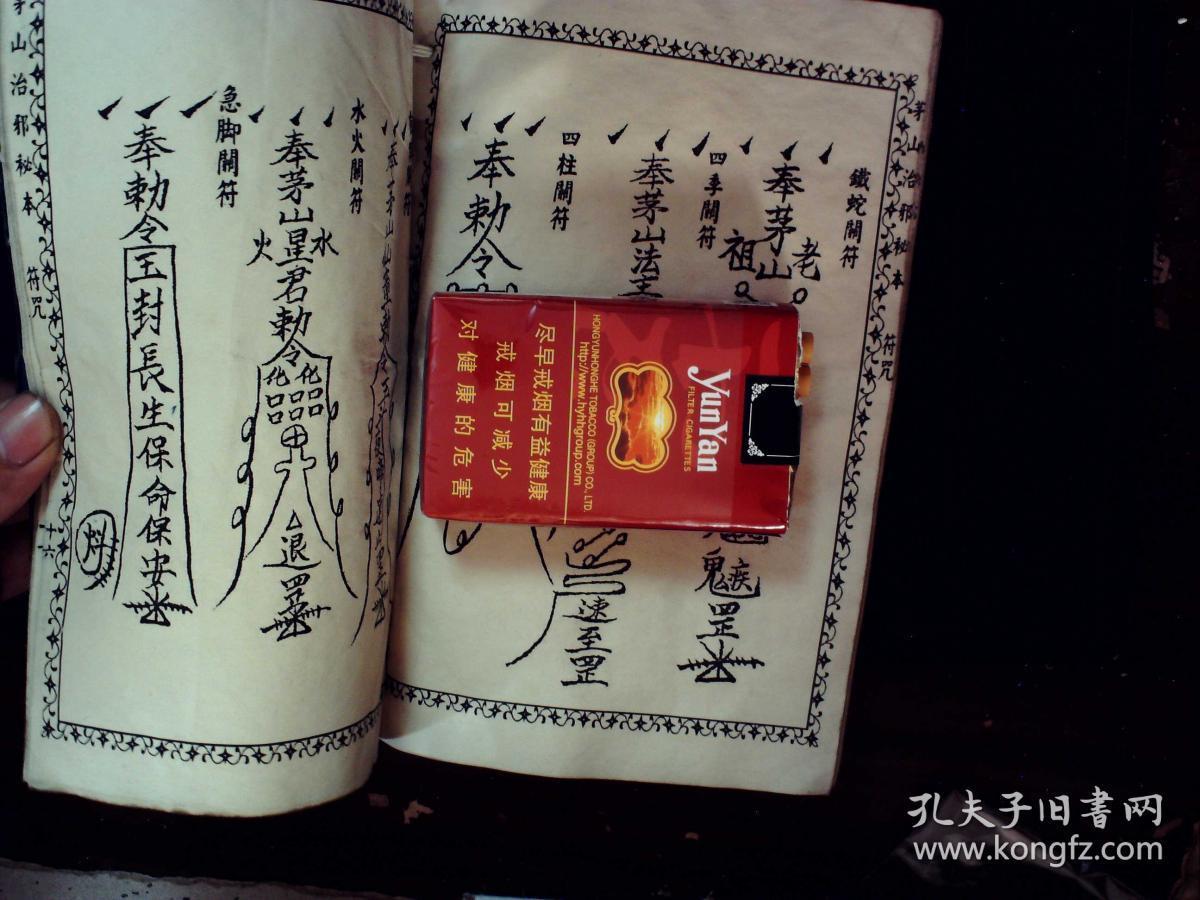 茅山治邪秘本 符咒
鐵蛇關符
奉茅山老祖
鬼
罡
四季關符
奉茅山法主
速至罡
四柱關符
奉勅令
水火關符
奉茅山星君勅令
水
火
化
化
退
罡
急脚關符
奉勅令
王封長生保命保安
茅山治邪秘本 符咒
十六
YunYan
FILTER CIGARETTES
HONGYUNHONGHE TOBACCO (GROUP) CO., LTD.
http://www.hyhhgroup.com
尽早戒烟有益健康
戒烟可减少
对健康的危害
孔夫子旧書网
www.kongfz.com